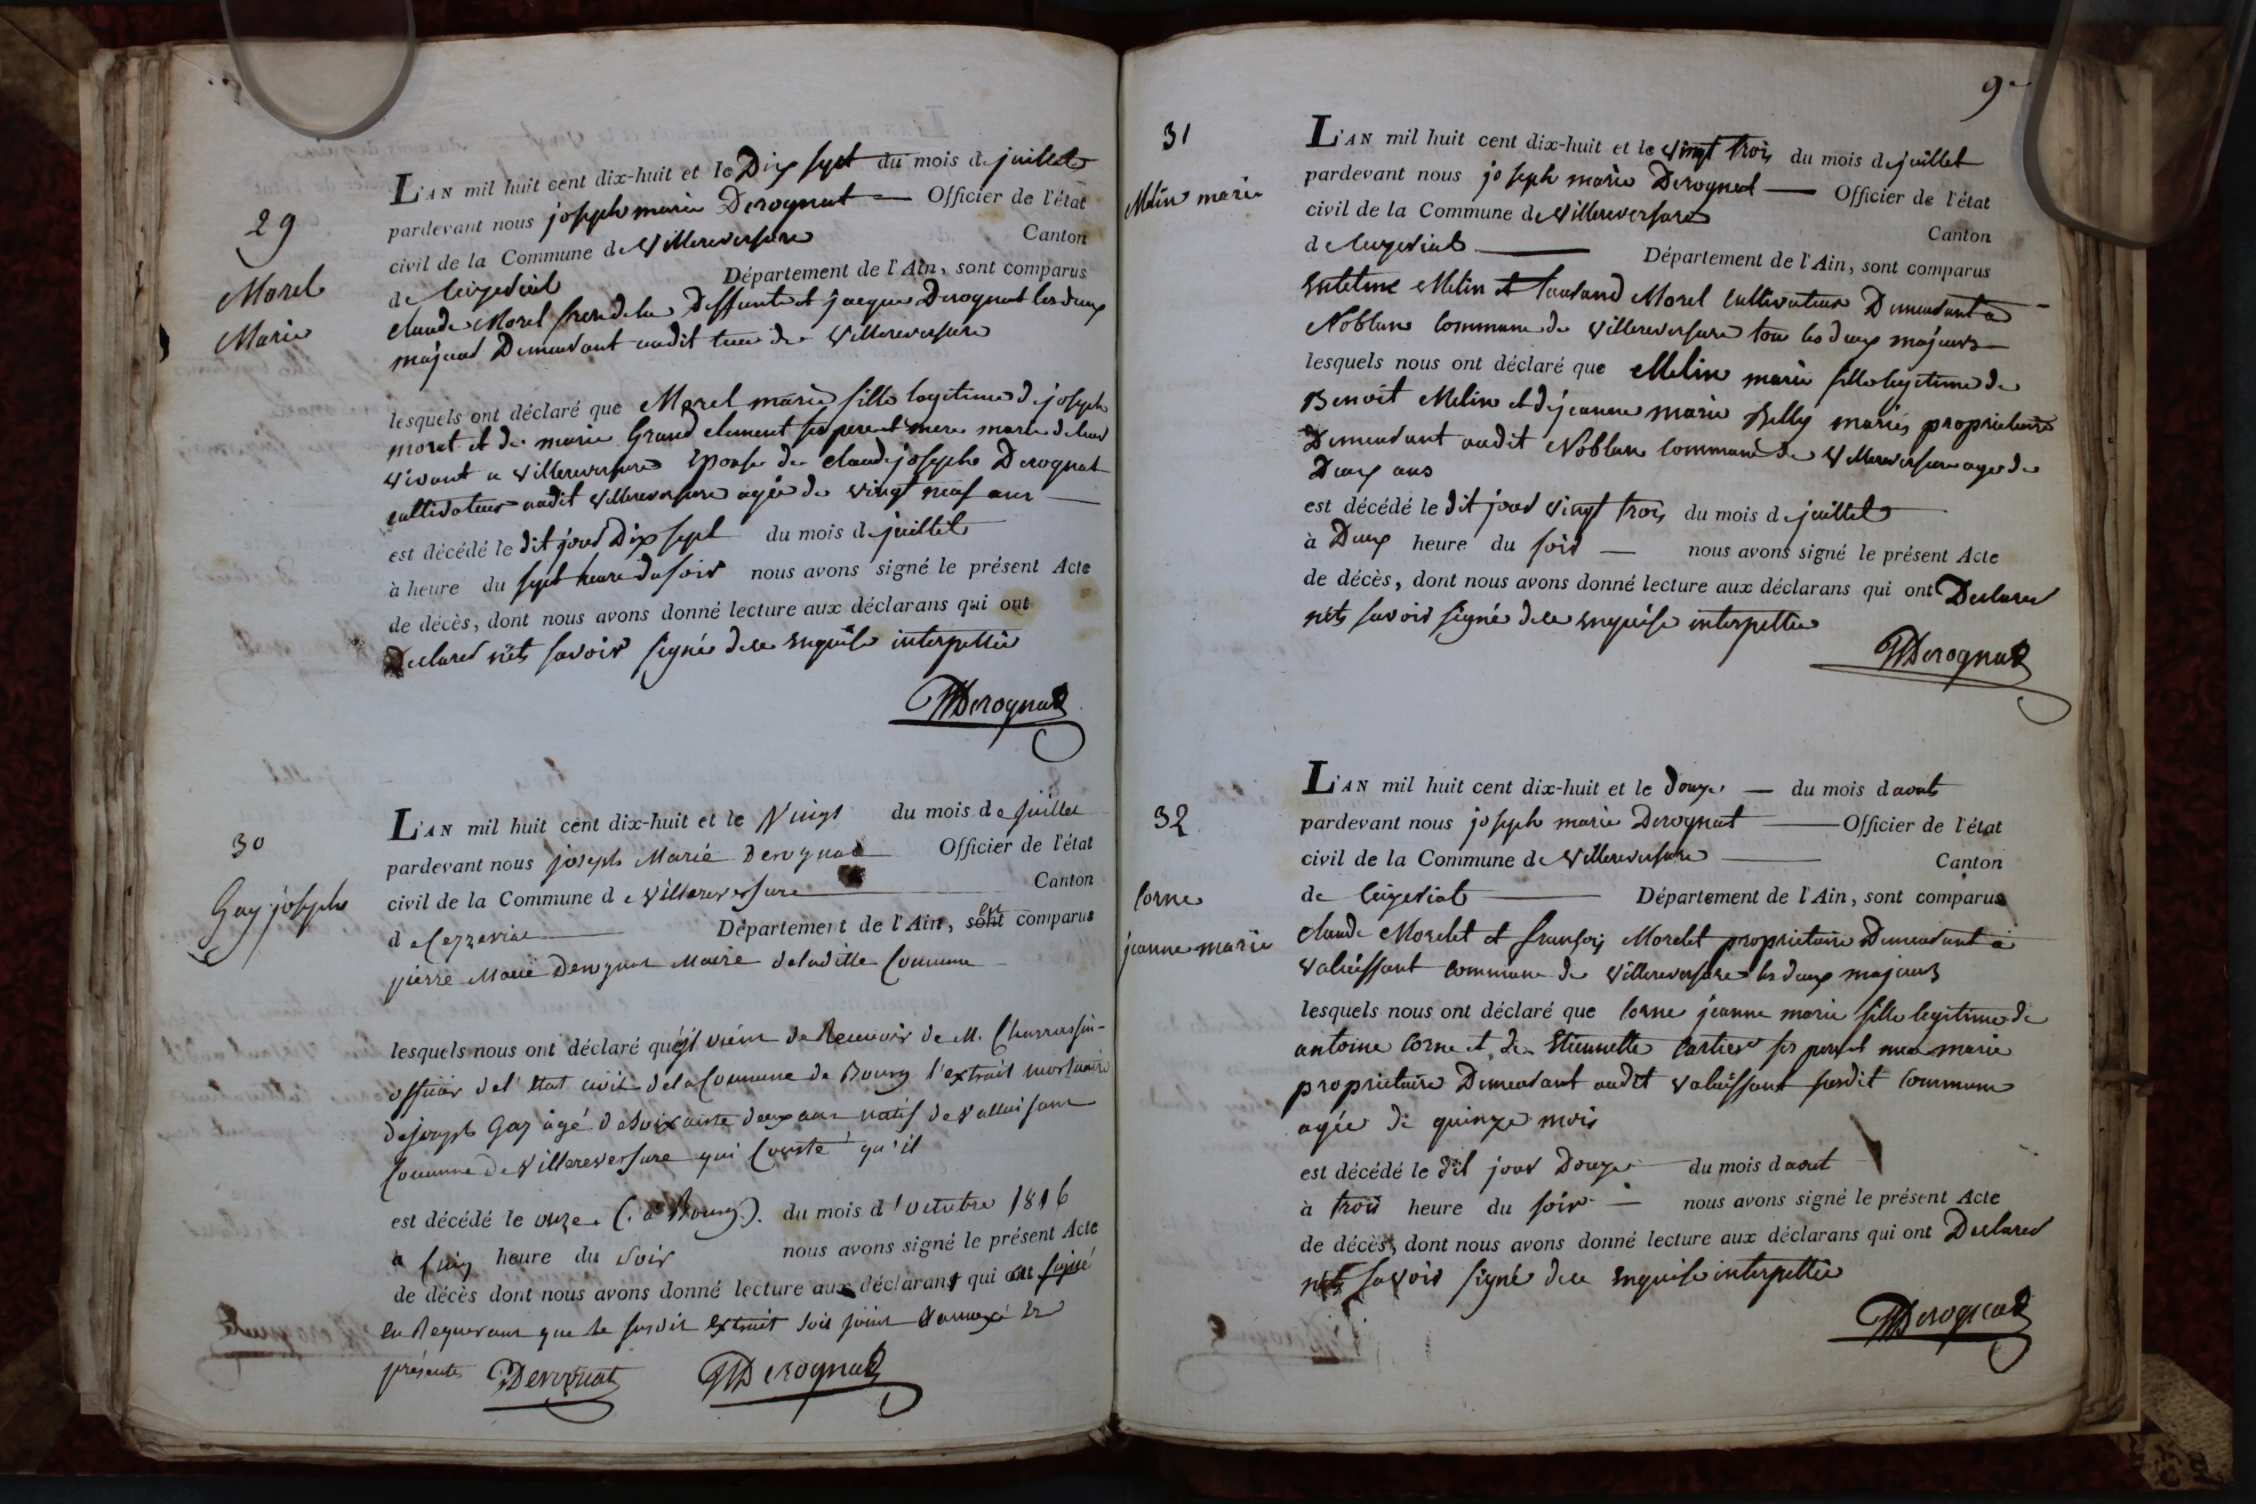 29
Morel
Marie
L'AN mil huit cent dix-huit et le Dix sept du mois de juillet
pardevant nous joseph marie Derognat — Officier de l'état
civil de la Commune de Villereversure Canton
de Ceizeriat Département de l'Ain, sont comparus
claude Morel frere de la Deffunte et jacque Derognat les deux
majeurs Demeurant audit lieu de Villereversure
lesquels ont déclaré que Morel marie fille legitime de joseph
morel et de marie Grand clement ses pere et mere
vivant a Villereversure Epouse de claude joseph Derognat
cultivateur audit Villereversure agée de vingt neuf ans
est décédé le dit jour Dix sept du mois de juillet
à heure du sept heure du soir nous avons signé le présent Acte
de décès, dont nous avons donné lecture aux déclarans qui ont
Declarer nêts savoir signée de ce enquise interpellée
Derognat
30
Gay joseph
L'AN mil huit cent dix-huit et le Vingt du mois de juillet
pardevant nous joseph Marie Derognat Officier de l'état
civil de la Commune de Villereversure Canton
de Cezzeriat Département de l'Ain, sont est comparus
pierre Marie Derognat Maire de laditte Commune
lesquels nous ont déclaré qu'il vient de Recevoir de M. Charrassin
officier de l'Etat civil de la Commune de Bourg l'extrait mortuaire
de joseph Gay âgé de Soixante deux ans natif de Valluissant
Commune de Villereversure qui Conste qu'il
est décédé le onze (à Bourg). du mois d'octobre 1816
à Cinq heure du Soir nous avons signé le présent Acte
de décès dont nous avons donné lecture aux déclarant qui ont signé
en Requerant que le susdit extrait soit joint
présente Derognat Derognat
9
31
Melin marie
L'AN mil huit cent dix-huit et le vingt trois du mois de juillet
pardevant nous joseph marie Derognat — Officier de l'état
civil de la Commune de Villereversure Canton
de Ceizeriat — Département de l'Ain, sont comparus
Melin et Morel cultivateur Demeurant a
Noblan commune de Villereversure tou les deux majeurs
lesquels nous ont déclaré que Melin marie fille legitime de
Benoit Melin et de jeanne marie Belly mariés proprietaire
Demeurant audit Noblan commune de Villereversure agee de
Deux ans
est décédé le dit jour vingt trois du mois de juillet
à Deux heure du soir — nous avons signé le présent Acte
de décès, dont nous avons donné lecture aux déclarans qui ont Declarer
nêts savoir signé de ce enquise interpellée
Derognat
32
Corne
jeanne marie
L'AN mil huit cent dix-huit et le douze — du mois d aout
pardevant nous joseph marie Derognat — Officier de l'état
civil de la Commune de Villereversure — Canton
de Ceizeriat — Département de l'Ain, sont comparus
claude Morelet et françois Morelet proprietaire Demeurant à
Valuissant commune de Villereversure les deux majeurs
lesquels nous ont déclaré que Corne jeanne marie fille legitime de
antoine Corne et de Etiennette Cartier ses pere et mere marie
proprietaire Demeurant audit Valuissant susdit Commune
agée de quinze mois
est décédé le dit jour Douze du mois d aout
à trois heure du soir — nous avons signé le présent Acte
de décès, dont nous avons donné lecture aux déclarans qui ont Declarer
nêts savoir signé de ce enquise interpellée
Derognat